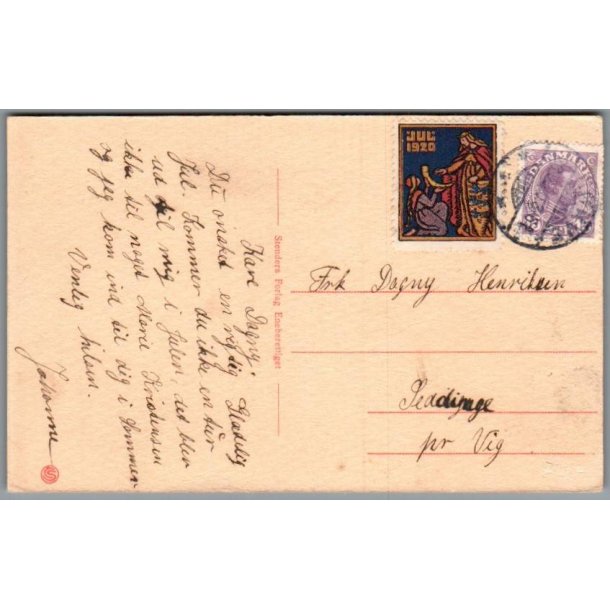 Kære Dagny.
Du ønskes en rigtig Glædelig
Jul. Kommer du ikke en tur
ud til mig i Julen, det blev
ikke til noget Marie Kristensen
og jeg kom ind til dig i Sommer
Venlig hilsen.
Johanne
Stenders Forlag Eneberettiget
JUL
1920
DANMARK
Frk Dagny Henriksen
pr Vig